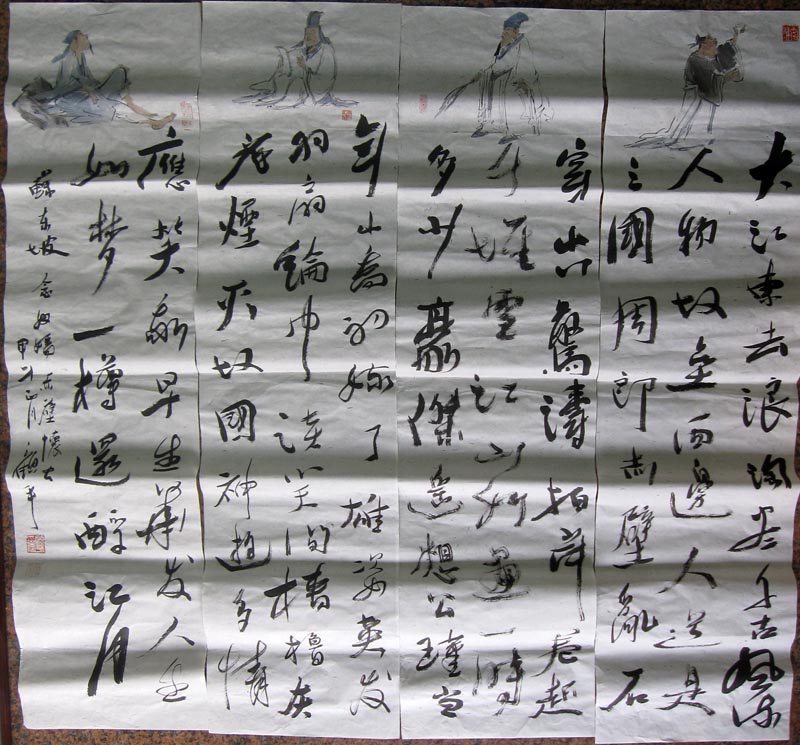 大江東去浪淘尽千古風流
人物故壘西邊人道是
三國周郎赤壁亂石
穿空驚濤拍岸卷起
千堆雪江山如畫一時
多少豪傑遙想公瑾当
年小喬初嫁了雄姿英发
羽扇綸巾談笑间檣櫓灰
飛煙灭故國神遊多情
應笑我早生華发人生
如梦一樽還酹江月
蘇东坡念奴嬌赤壁懷古
甲申正月